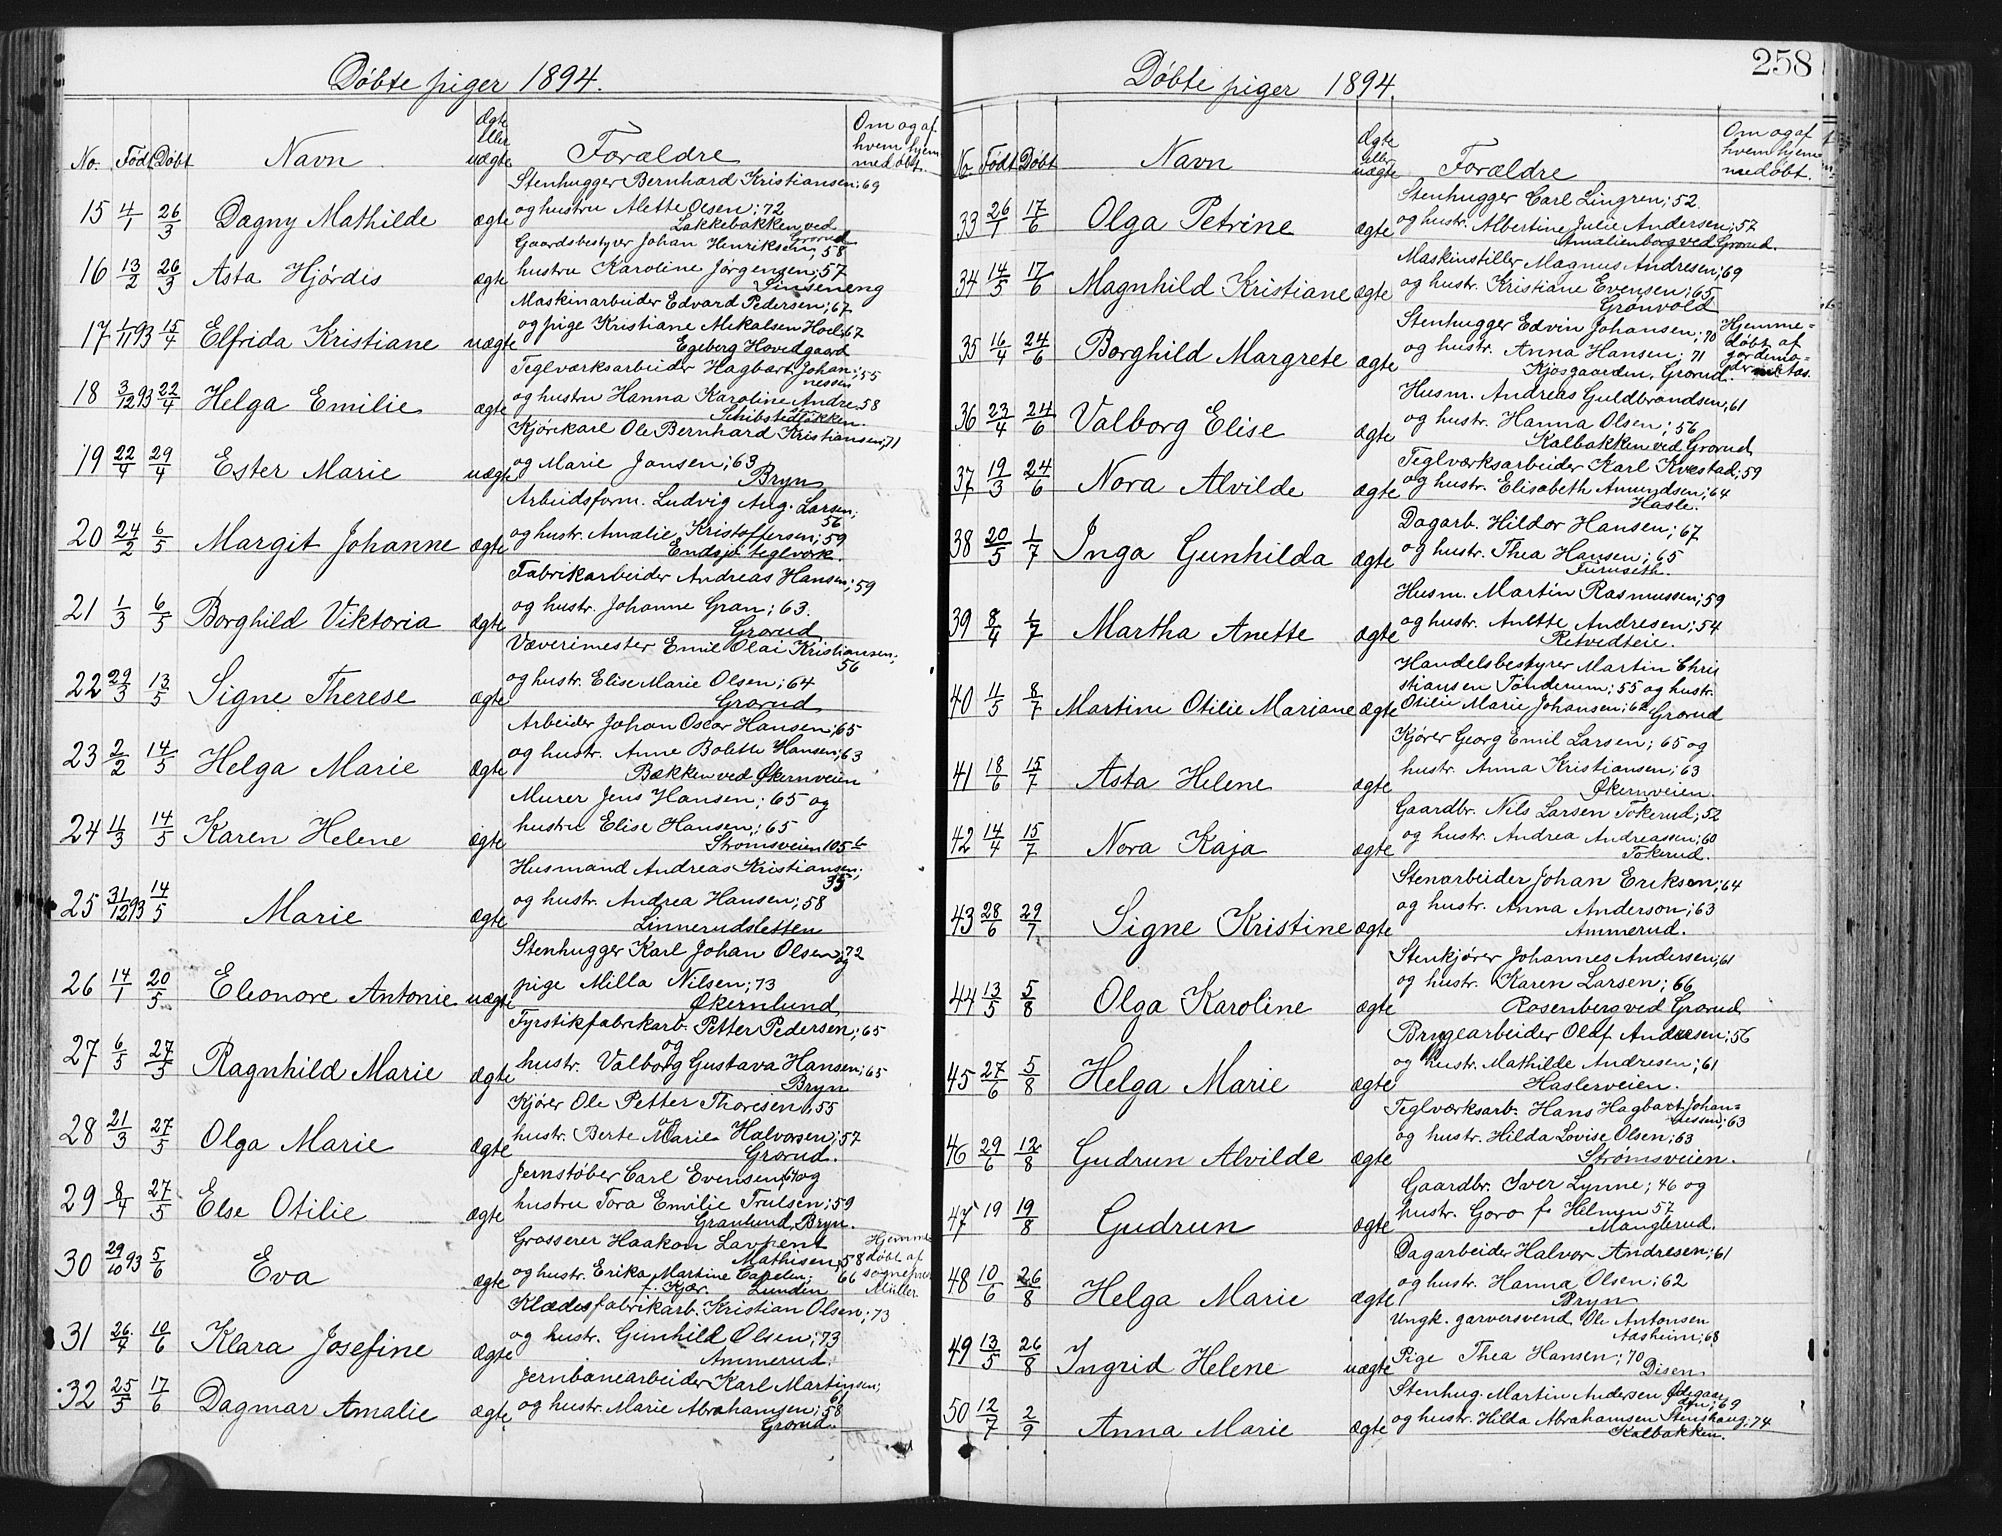 Døbte piger 1894.
No. Født Døbt Navn Ægte eller uægte Forældre Om og af hvem hjemmedøbt.
15 4/1 26/3 Dagny Mathilde ægte
Stenhugger Bernhard Kristiansen; 69
og hustru Alette Olsen; 72
Lakkebakken ved Grorud
16 13/2 26/3 Asta Hjørdis ægte
Gaardsbestyrer Johan Henriksen, 58
hustru Karoline Jørgensen; 57
Sinseneng
17 1/11 93 15/4 Elfrida Kristiane uægte
Maskinarbeider Edvard Pedersen; 67
og pige Kristiane Mikalsen Hoel; 67
Egeberg Hovedgaard
18 3/12 93 22/4 Helga Emilie ægte
Teglværksarbeider Hagbart Johannessen; 55
og hustru Hanna Karoline Andre 58
Schibstedløkken.
19 22/4 29/4 Ester Marie uægte
Kjørekarl Ole Bernhard Kristiansen; 71
og Marie Jansen; 63
Bryn
20 24/2 6/5 Margit Johanne ægte
Arbeidsform. Ludvig Aug. Larsen; 56
og hustr. Amalie Kristoffersen; 59
Endsjø teglverk.
21 1/3 6/5 Borghild Viktoria ægte
Fabrikarbeider Andreas Hansen; 59
og hustr. Johanne Gran; 63.
Grorud
22 29/3 13/5 Signe Therese ægte
Væverimester Emil Olai Kristiansen; 56
og hustr. Elise Marie Olsen; 64
Grorud
23 2/2 14/5 Helga Marie ægte
Arbeider Johan Oscar Hansen; 65
og hustr. Anne Bolette Hansen; 63
Bækken ved Økernveien
24 11/3 14/5 Karen Helene ægte
Murer Jens Hansen; 65 og
hustru Elise Hansen; 65
Strømsveien 105 b
25 31/12 93 14/5 Marie ægte
Husmand Andreas Kristiansen; 35
og hustr. Andrea Hansen; 58
Linnerudsletten
26 14/1 20/5 Eleonore Antonie uægte
Stenhugger Karl Johan Olsen; 72 og
pige Milla Nilsen; 73
Økernlund
27 6/5 27/5 Ragnhild Marie ægte
Fyrstikfabrikarb. Petter Pedersen; 65 og
hustr. Valborg Gustava Hansen; 65
Bryn
28 21/3 27/5 Olga Marie ægte
Kjører Ole Petter Thoresen; 55 og
hustr. Berte Marie Halvorsen; 57
Grorud.
29 8/4 27/5 Else Otilie ægte
Jernstøber Carl Evensen; 61 og
hustru Tora Emilie Trulsen; 59
Granlund, Bryn.
30 29/10 93 5/6 Eva ægte
Grosserer Haakon Lavpent Mathisen, 58
og hustr. Erika Martine Cappelen; 66
f. Kjær. Lunden
Hjemmedøbt af sognepræst Müller
31 26/4 10/6 Klara Josefine ægte
Klædesfabrikarb. Kristian Olsen; 73
og hustr. Gunhild Olsen; 73
Ammerud.
32 25/5 17/6 Dagmar Amalie ægte
Jernbanearbeider Karl Martinsen; 61
og hustr. Marie Abrahamsen; 58
Grorud.
258
Døbte piger 1894.
No. Født Døbt Navn Ægte eller uægte Forældre Om og af hvem hjemmedøbt.
33 26/1 17/6 Olga Petrine ægte
Stenhugger Carl Lingren; 52.
og hustr. Albertine Julie Andersen; 57
Amalienborg ved Grorud.
34 14/5 17/6 Magnhild Kristiane ægte
Maskinstiller Magnus Andresen; 69
og hustr. Kristiane Evensen; 65
Grønvold
35 16/4 24/6 Borghild Margrete ægte
Stenhugger Edvin Johansen; 70
og hustr. Anna Hansen; 71
Kjosgaarden, Grorud.
Hjemmedøbt af gjordemoder
36 23/4 24/6 Valborg Elise ægte
Husm. Andreas Guldbrandsen; 61
og hustr. Hanna Olsen; 56
Kalbakken ved Grorud
37 19/3 24/6 Nora Alvilde ægte
Teglværksarbeider Karl Kvestad; 59
og hustr. Elisabeth Amundsen; 64
Hasle.
38 20/5 1/7 Inga Gunhilda ægte
Dagarb. Hildor Hansen; 67
og hustr. Thea Hansen; 65
Furuseth.
39 8/4 1/7 Martha Anette ægte
Husm. Martin Rasmussen; 59
og hustr. Anette Andresen; 54
Retvedteie.
40 11/5 8/7 Martine Otilie Mariane ægte
Handelsbestyrer Martin Christiansen Tønderum; 55 og hustr.
Otilie Marie Johansen; 62 Grorud
41 18/6 15/7 Asta Helene ægte
Kjører Georg Emil Larsen; 65 og
hustr. Anna Kristiansen; 63
Økernveien.
42 14/4 15/7 Nora Kaja ægte
Gaardbr. Nils Larsen Tokerud; 52
og hustr. Andrea Andreassen; 60
Tokerud.
43 28/6 29/7 Signe Kristine ægte
Stenarbeider Johan Eriksen; 64
og hustr. Anna Anderson; 63
Ammerud.
44 13/5 5/8 Olga Karoline ægte
Stenkjører Johannes Andersen; 61
og hustr. Karen Larsen; 66
Rosenberg ved Grorud
45 27/6 5/8 Helga Marie ægte
Bryggearbeider Olaf Andresen; 56
og hustr. Mathilde Andresen; 61
Haslerveien.
46 29/6 12/8 Gudrun Alvilde ægte
Teglværksarb. Hans Hagbart Johannessen; 63
og hustr. Hilda Lovise Olsen; 63
Strømsveien.
47 19 19/8 Gudrun ægte
Gaardbr. Iver Lynne; 46 og
hustr. Goro f. Helmen 57
Manglerud.
48 10/6 26/8 Helga Marie ægte
Dagarbeider Halvor Andresen; 61
og hustr. Hanna Olsen; 62
Bryn
49 13/5 26/8 Ingrid Helene uægte
Ungk. garversvend Ole Antonsen Aasheim; 68
Pige Thea Hansen; 70
Disen
50 12/7 2/9 Anna Marie ægte
Stenhug. Martin Andersen Ødegaarden; 69
og hustr. Hilda Abrahamsen Stenshaug; 74
Kalbakken.